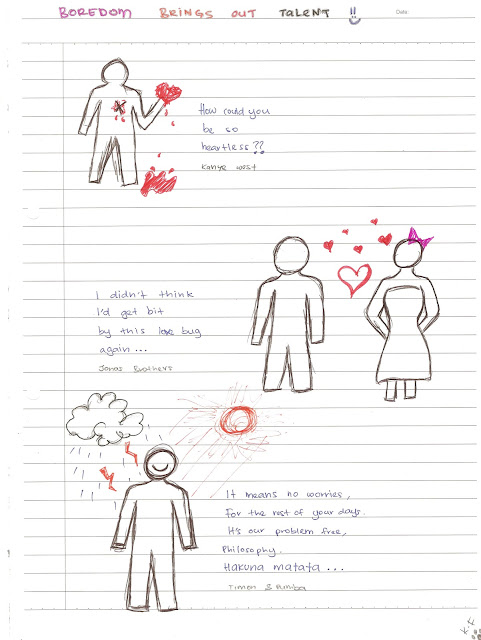 BOREDOM BRINGS OUT TALENT
Date:
How could you
be so
heartless??
Kanye west
I didn't think
I'd get bit
by this love bug
again...
Jonas Brothers
It means no worries,
For the rest of your days.
It's our problem free,
Philosophy.
Hakuna matata ...
Timon & Pumba